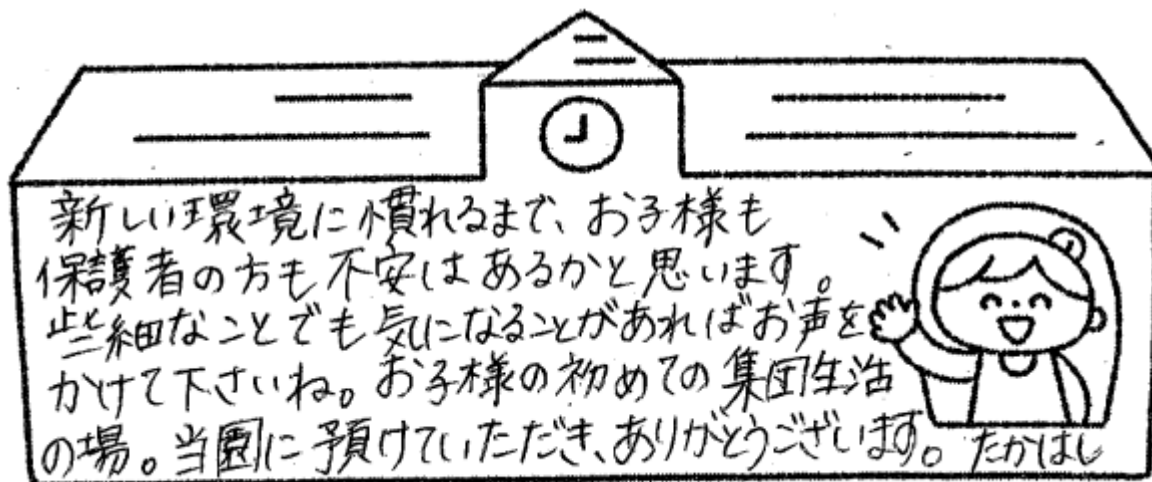 新しい環境に慣れるまで、お子様も
保護者の方も不安はあるかと思います。
些細なことでも気になることがあればお声を
かけて下さいね。お子様の初めての集団生活
の場。当園に預けていただき、ありがとうございます。 たかはし